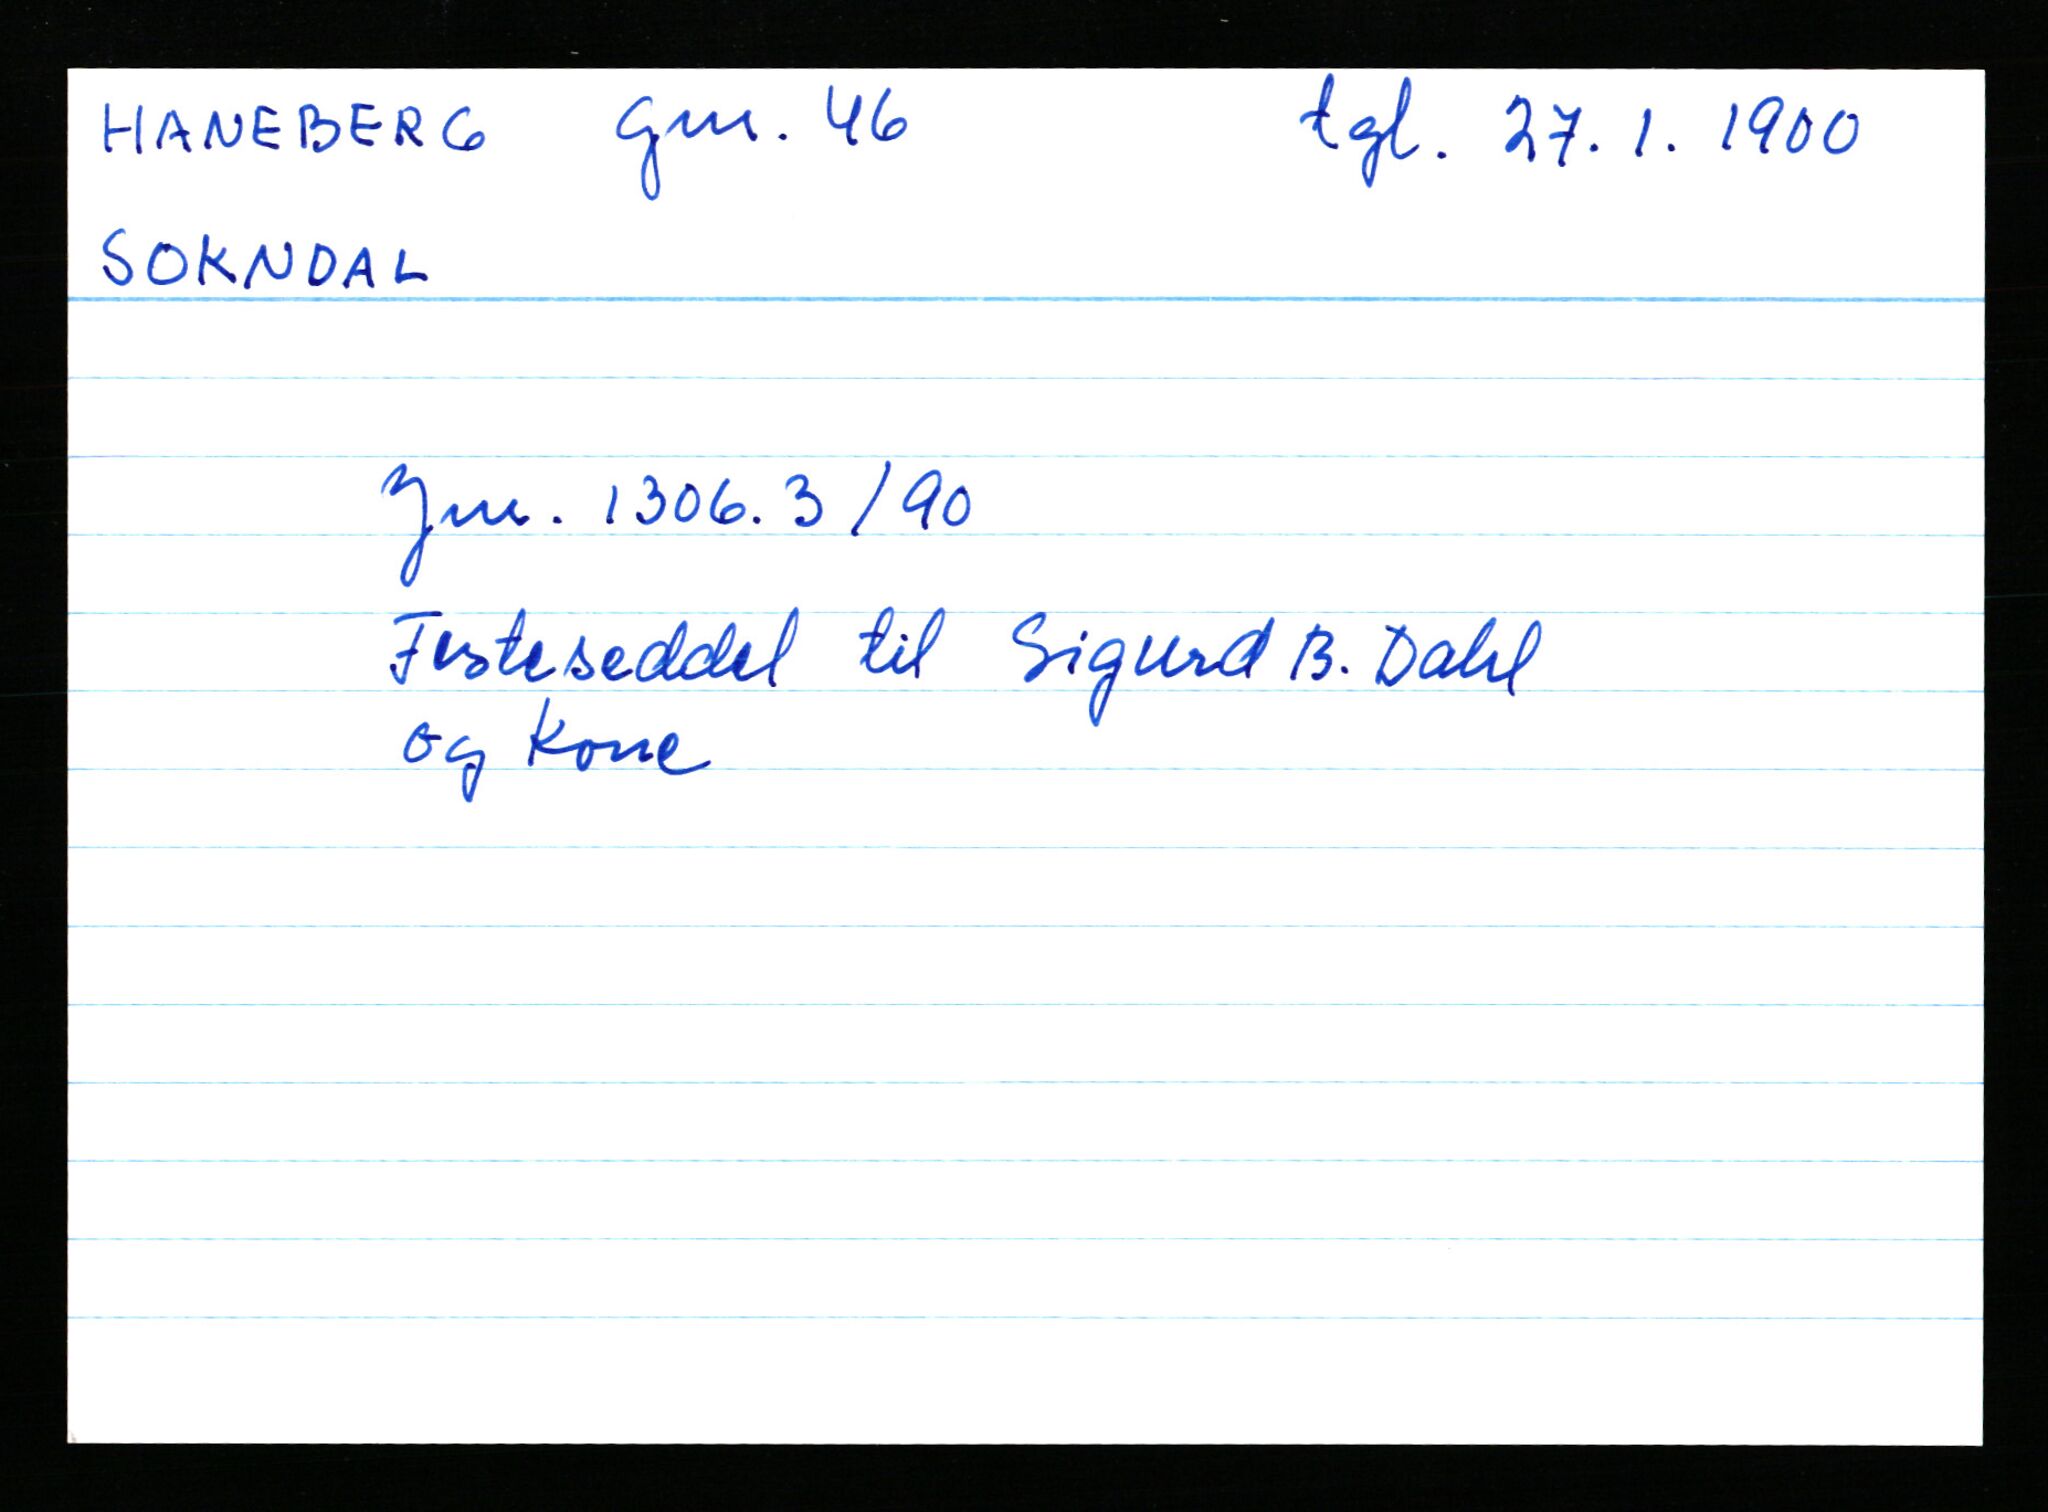 HANEBERG gnr. 46 tgl. 27.1.1900
SOKNDAL
Jnr. 1306.3/90
Festeseddel til Sigurd B. Dahl
og kone